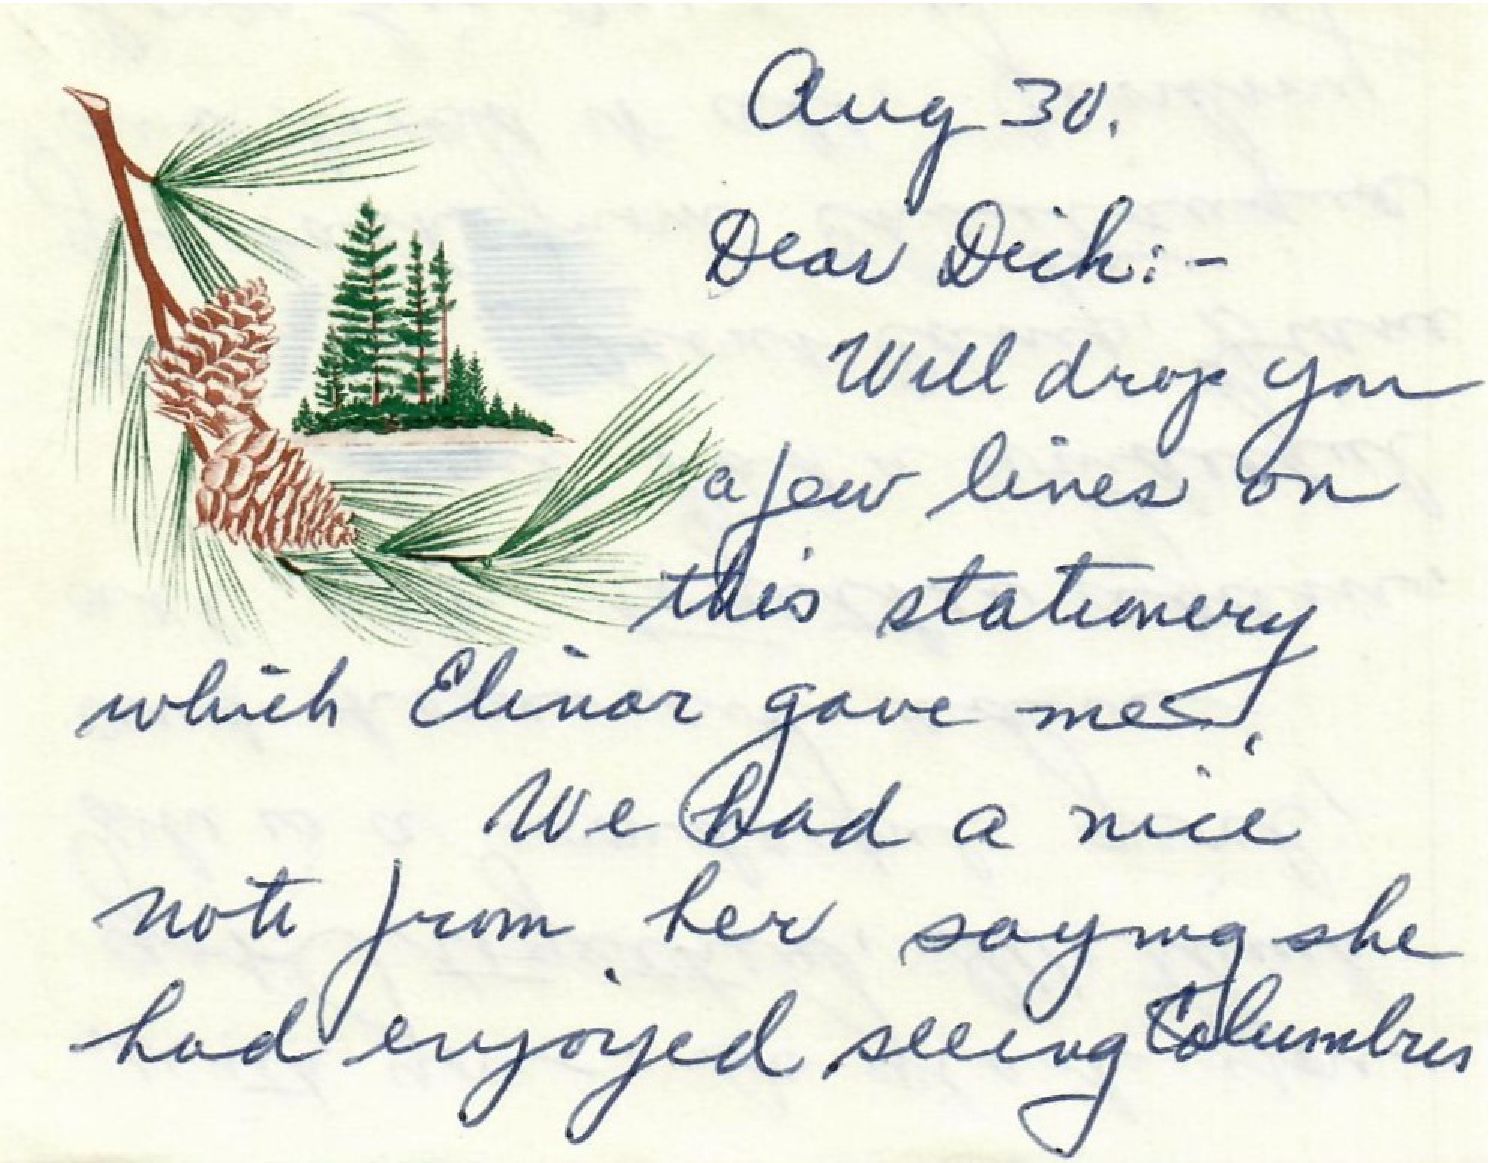 Aug 30.
Dear Dick:-
Will drop you
a few lines on
this stationery
which Elinor gave me.
We had a nice
note from her saying she
had enjoyed seeing Columbus